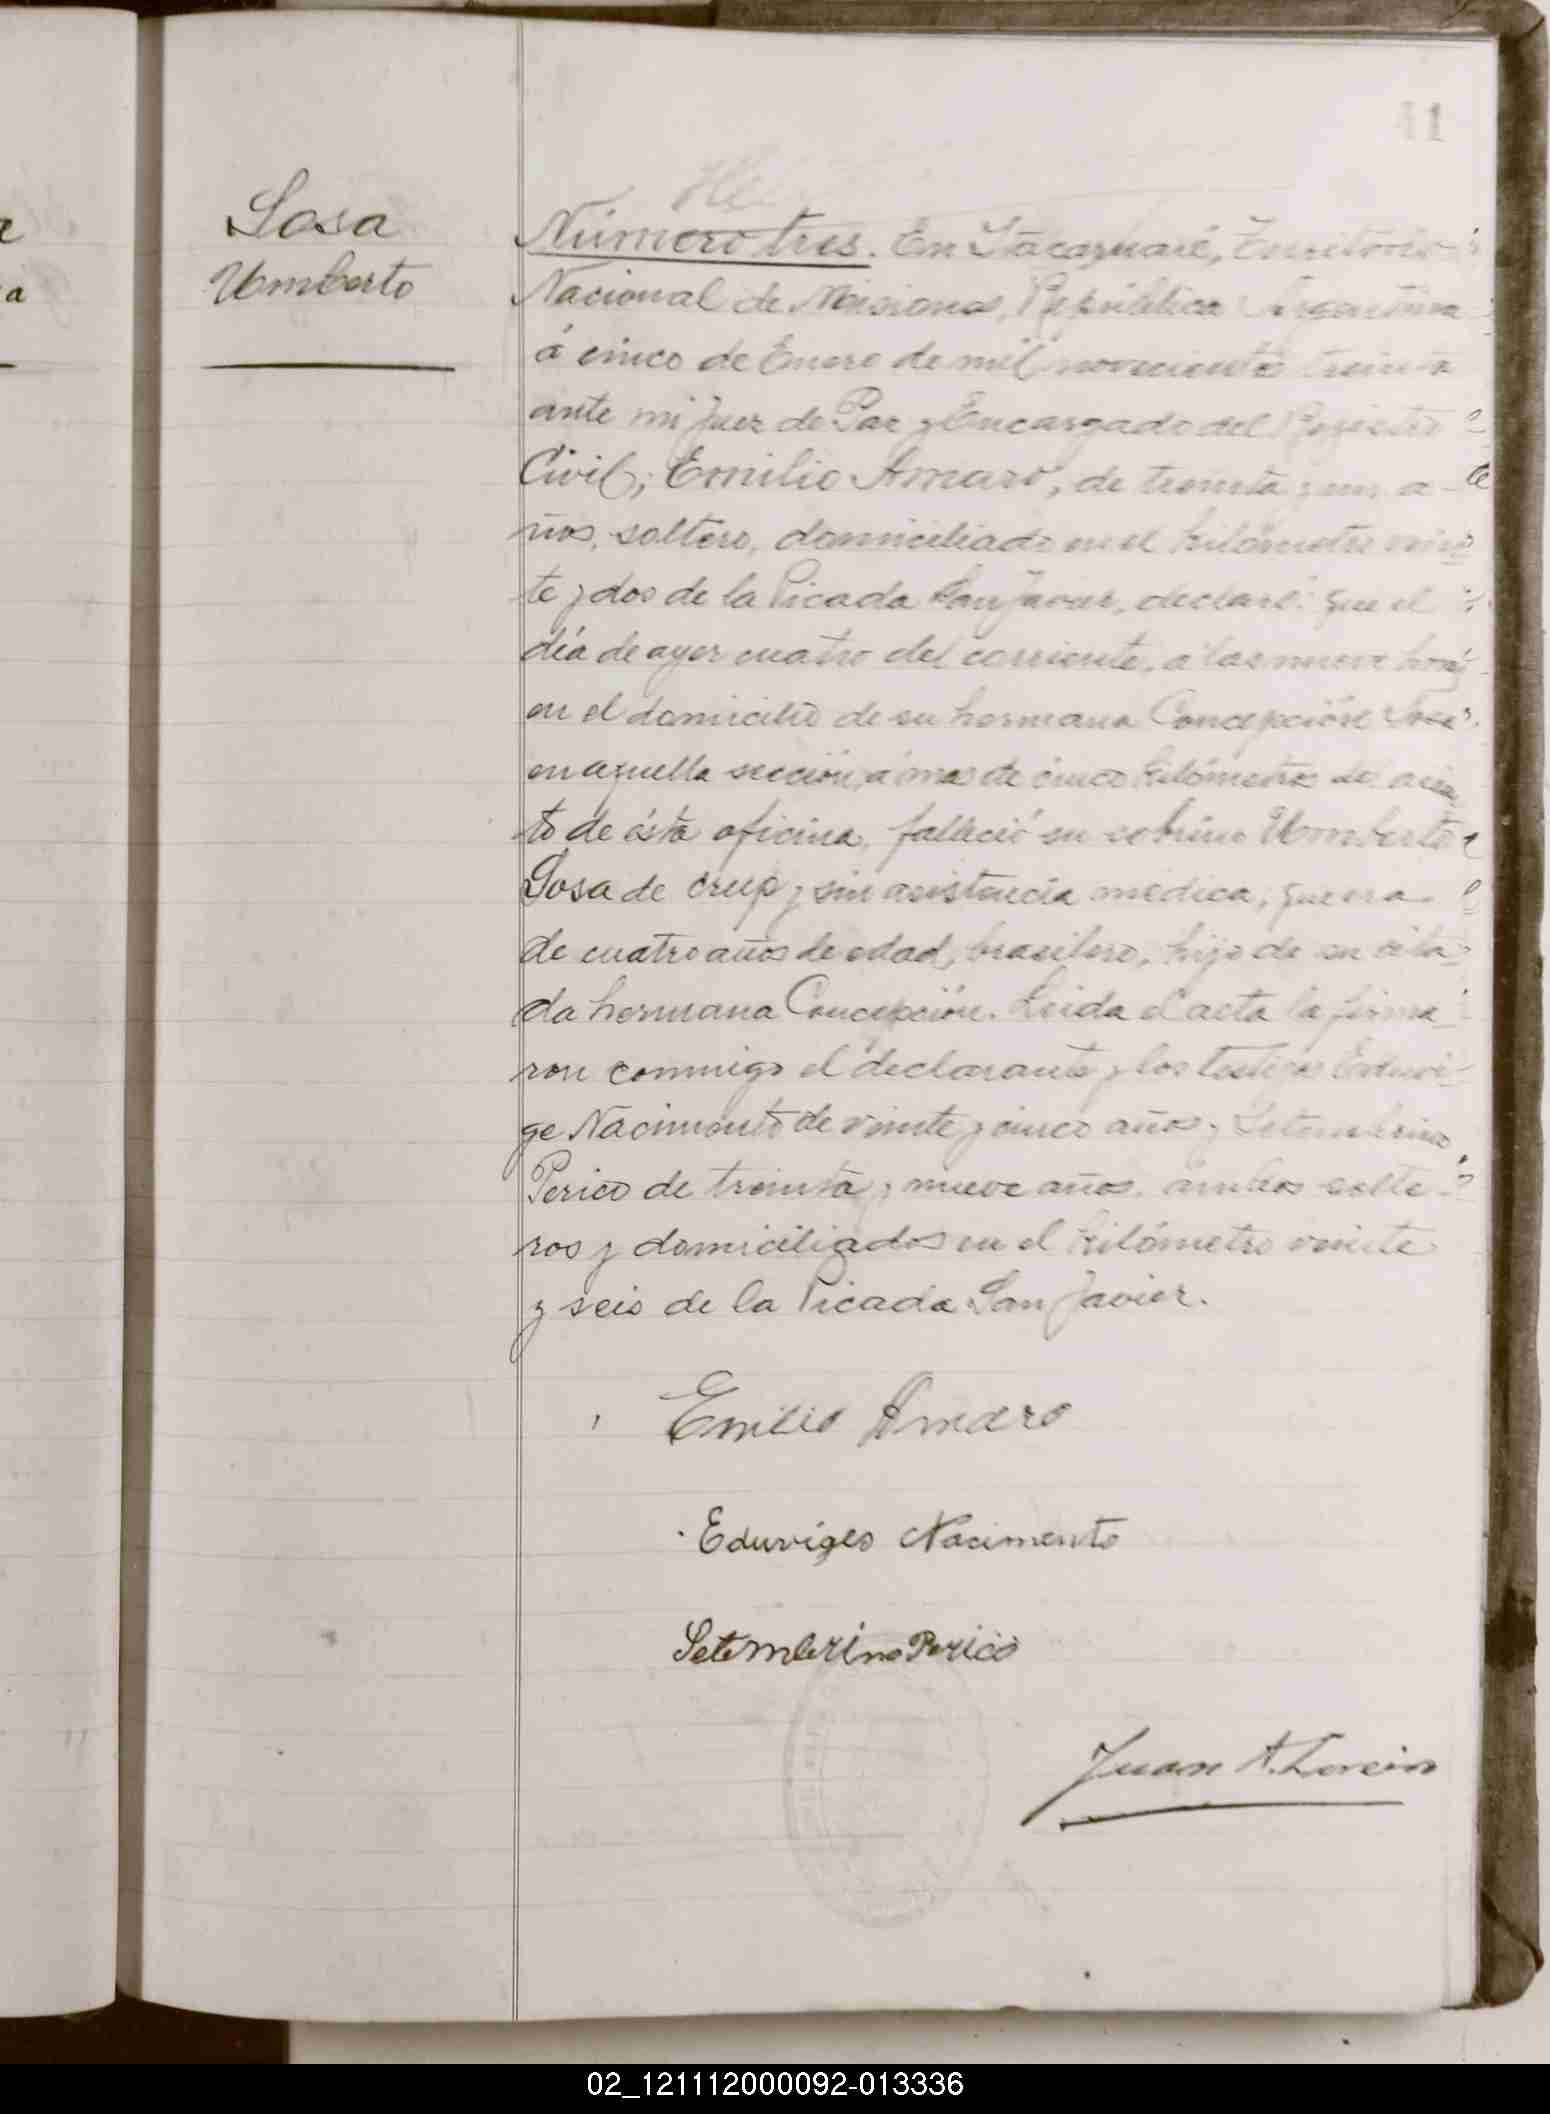 41
Sosa
Umberto
Número tres. En Itacaruaré, Territorio
Nacional de Misiones, República Argentina
á cinco de Enero de mil novecientos treinta
ante mi Juez de Paz y Encargado del Registro
Civil; Emilio Amaro, de treinta y un a-
ños, soltero, domiciliado en el kilómetro vein
te y dos de la Picada San Javier, declaró: que el
día de ayer cuatro del corriente, a las nueve horas
en el domicilio de su hermana Concepción Sosa
en aquella sección, á mas de cinco kilómetros del asien
to de ésta oficina, falleció su sobrino Umberto
Sosa de crup y sin asistencia médica, que era
de cuatro años de edad, brasilero, hijo de su cita
da hermana Concepción. Leida el acta la firma
ron conmigo el declarante y los testigos Eduvi-
ge Nacimento de veinte y cinco años y Setembrino
Perico de treinta y nueve años, ambos solte-
ros y domiciliados en el kilómetro veinte
y seis de la Picada San Javier.
Emilio Amaro
Eduviges Nacimento
Setembrino Perico
Juan A.
02_121112000092-013336